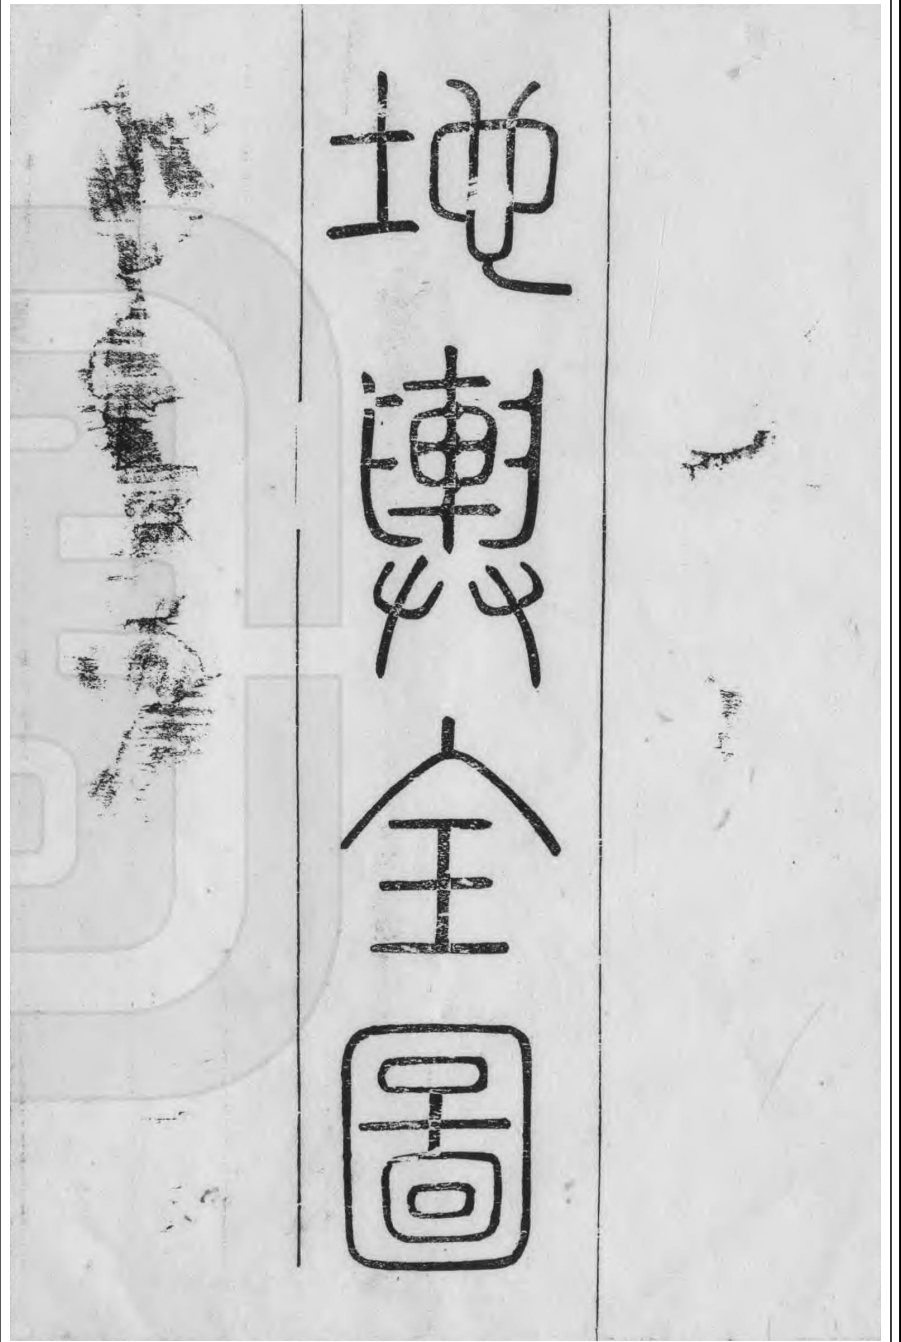 地輿全圖